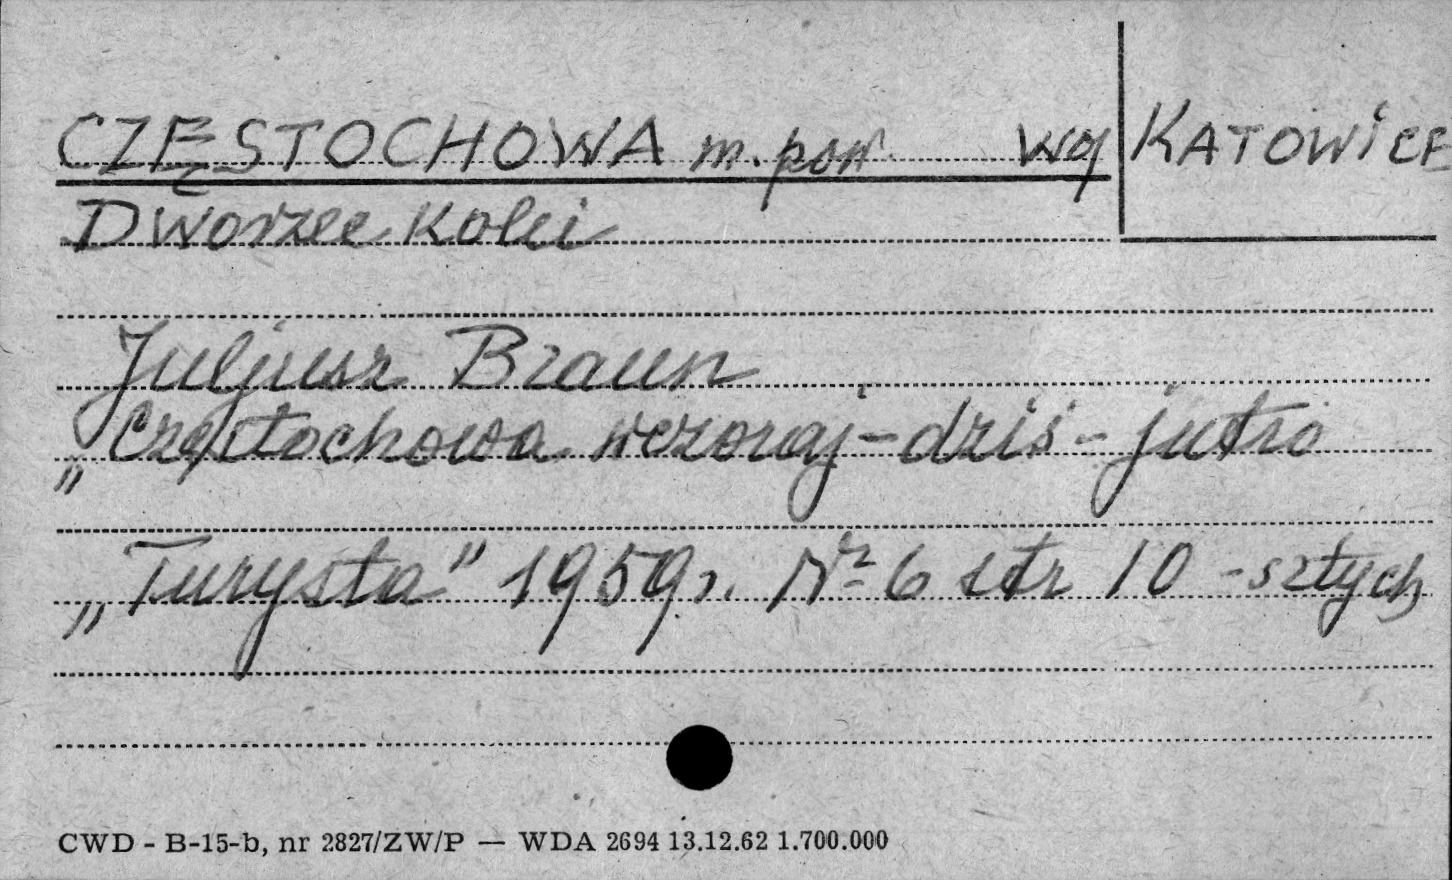 CZĘSTOCHOWA m. pow. woj KATOWICE
Dworzec Kolei
Juljusz Braun
„Częstochowa wczoraj-dziś-jutro
„Turysta" 1959 r. Nr 6 str 10 - sztych
CWD - B-15-b, nr 2827/ZW/P — WDA 2694 13.12.62 1.700.000